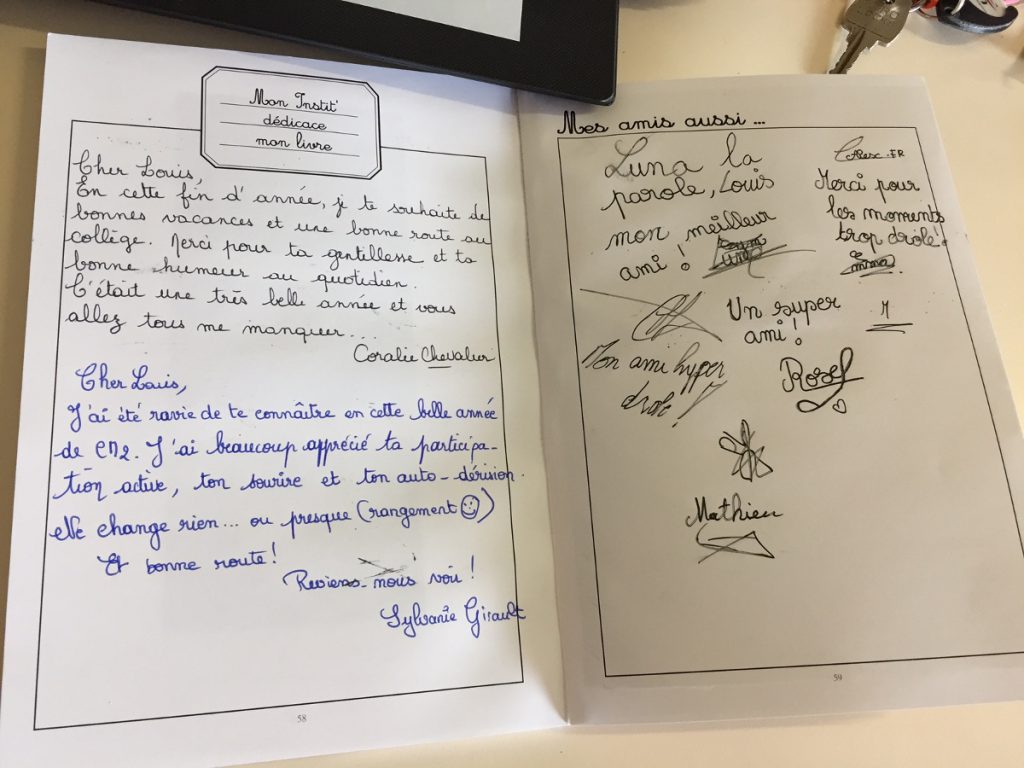 Mon Instit'
dédicace
mon livre
Cher Louis,
En cette fin d'année, je te souhaite de
bonnes vacances et une bonne route au
collège. Merci pour ta gentillesse et ta
bonne humeur au quotidien.
C'était une très belle année et vous
allez tous me manquer...
Coralie Chevalier
Cher Louis,
J'ai été ravie de te connaître en cette belle année
de CM2. J'ai beaucoup apprécié ta participa-
tion active, ton sourire et ton auto-dérision.
Ne change rien... ou presque (rangement ☺)
Et bonne route!
Reviens nous voir!
Sylvanie Girault
58
Mes amis aussi ...
Luna la
parole, Louis
mon meilleur
ami!
Alex.ER
Merci pour
les moments
trop drolé!
Emma.
Un super
ami!
M
Mon ami hyper
drole!
Rose
Mathieu
59